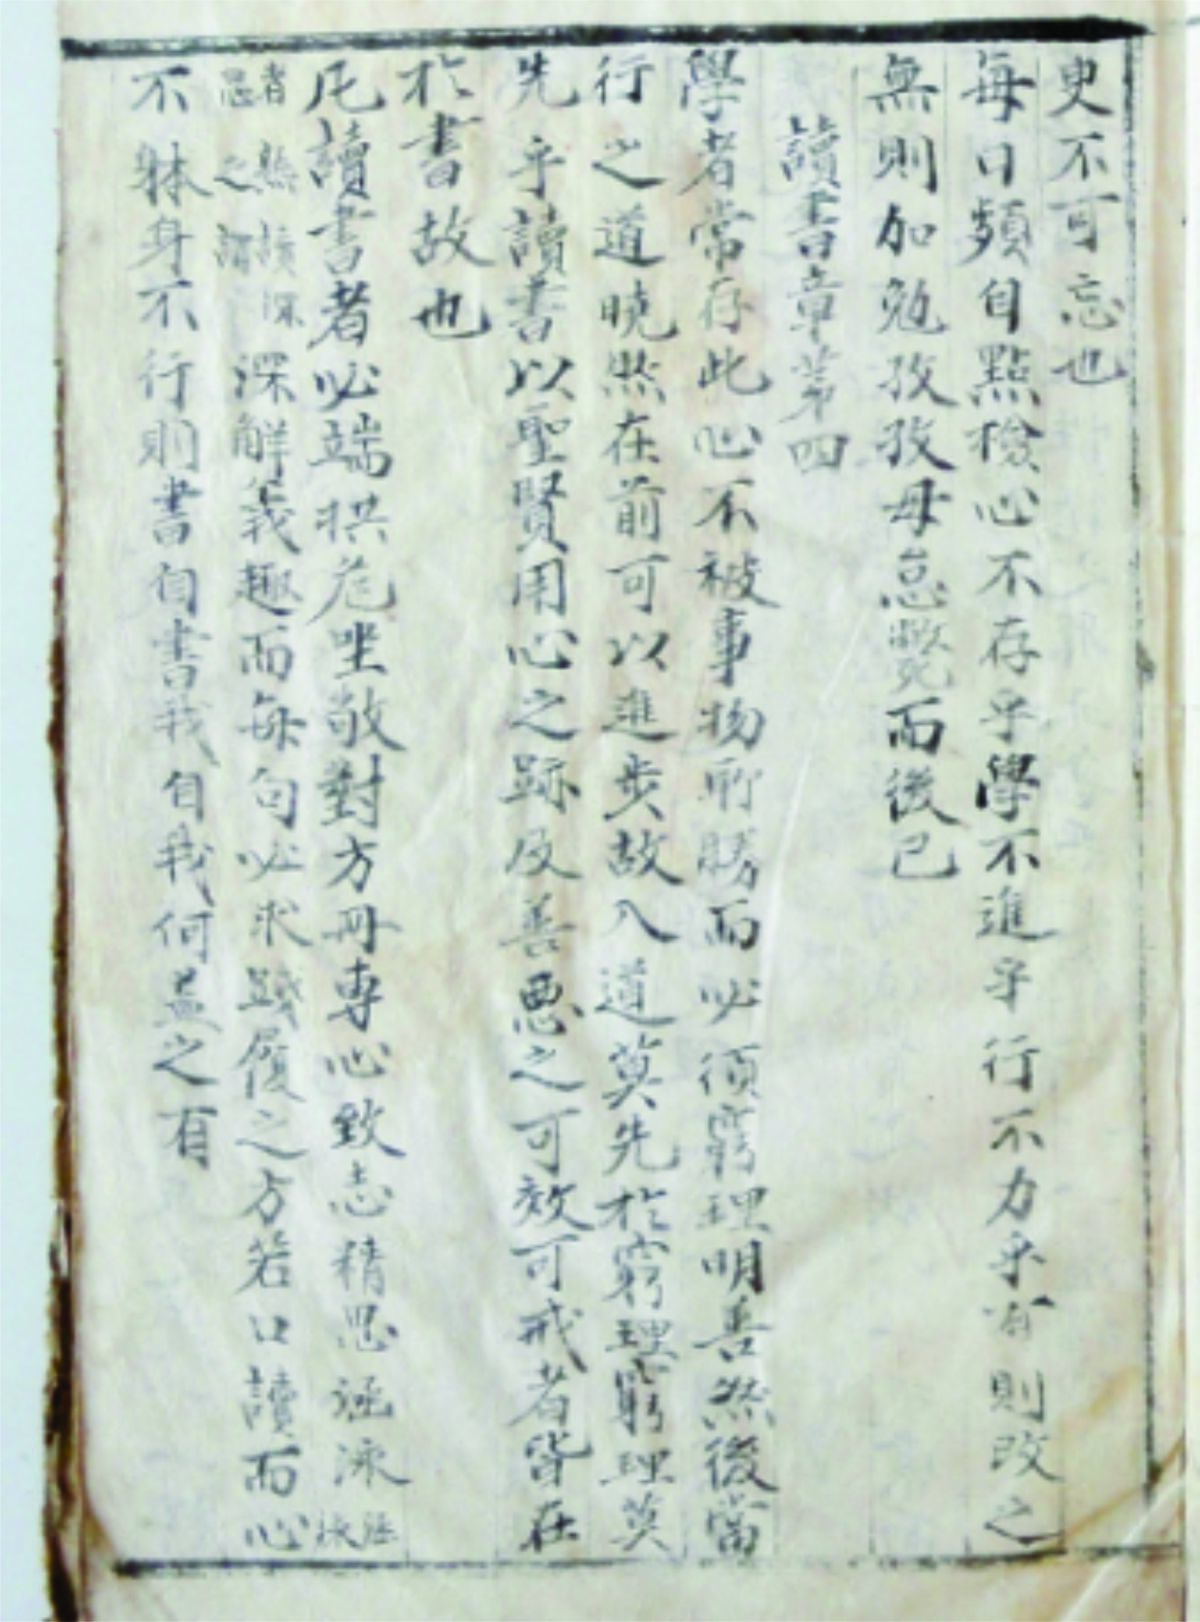 臾不可忘也
每日頻自點檢心不存乎學不進乎行不力乎有則改之
無則加勉孜孜毋怠斃而後已
讀書章第四
學者常存此心不被事物所勝而必須窮理明善然後當
行之道曉然在前可以進步故入道莫先於窮理窮理莫
先乎讀書以聖賢用心之跡及善惡之可效可戒者皆在
於書故也
凡讀書者必端拱危坐敬對方冊專心致志精思涵泳涵泳
者熟讀深思之謂深解義趣而每句必求踐履之方若口讀而心
不躰身不行則書自書我自我何益之有